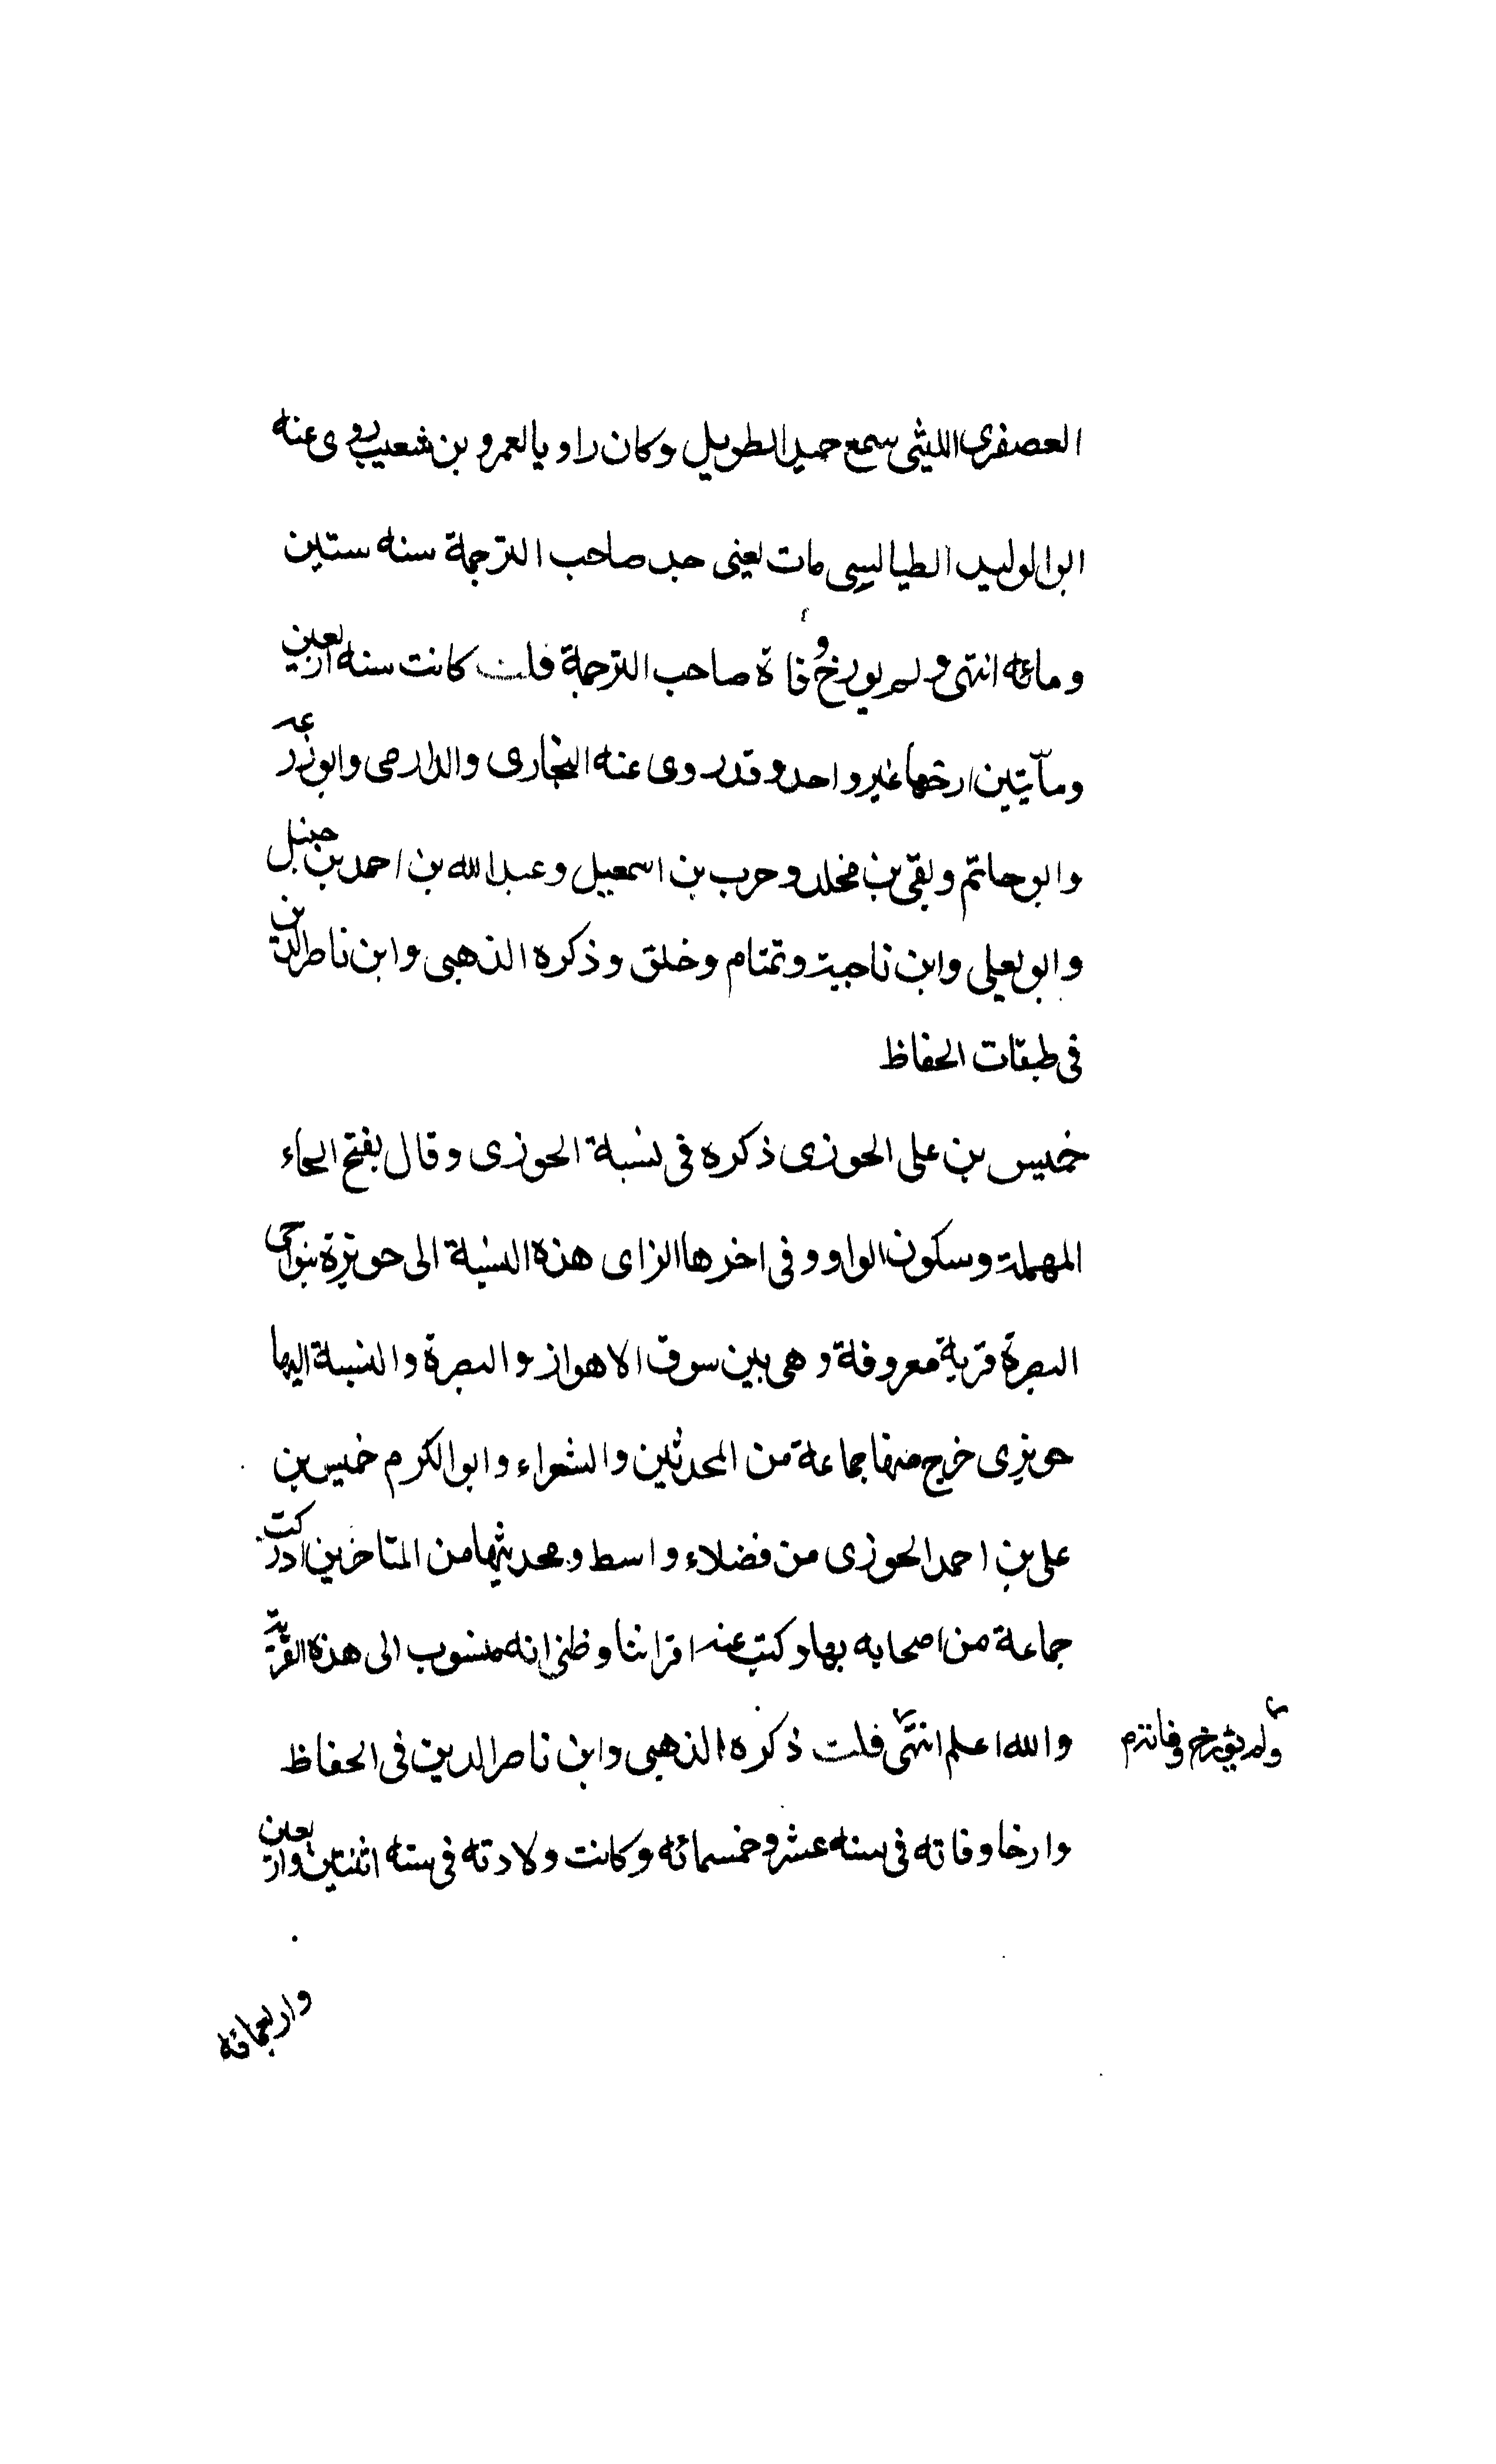 العصفرى الليثى سمع حميد الطويل وكان راويا لعمرو بن شعيب روى عنه
ابو الوليد الطيالسى مات يعنى جد صاحب الترجمة سنه ستين
ومائه انتهى ولم يورخ وفاة صاحب الترجمة قلت كانت سنه اربعين
ومآيتين ارخها غير واحد وقد روى عنه البخارى والدارمى وابو زرعه
وابو حاتم وبقى بن مخلد وحرب بن اسمعيل وعبد الله بن احمد بن حنبل
وابو يعلى وابن ناجية وتمتام وخلق وذكره الذهبى وابن ناصر الدين
فى طبقات الحفاظ
خميس بن على الحوزى ذكره فى نسبة الحوزى وقال بفتح الحاء
المهملة وسكون الواو وفى اخرها الزاى هذه النسبة الى حويزة بنواحى
البصرة قرية معروفة وهى بين سوق الاهواز والبصرة والنسبة اليها
حويزى خرج منها جماعة من المحدثين والشعراء وابو الكرم خميس بن
على بن احمد الحوزى من فضلاء واسط ومحدثيها من المتاخرين ادركت
جماعة من اصحابه بها وكتب عنه اقراننا وظنى انه منسوب الى هذه القرية
والله اعلم انتهى قلت ذكره الذهبى وابن ناصر الدين فى الحفاظ
ولم يورخ وفاته
وارخا وفاته فى سنه عشر وخمسمائه وكانت ولادته فى سنه اثنتين واربعين
واربعمائه